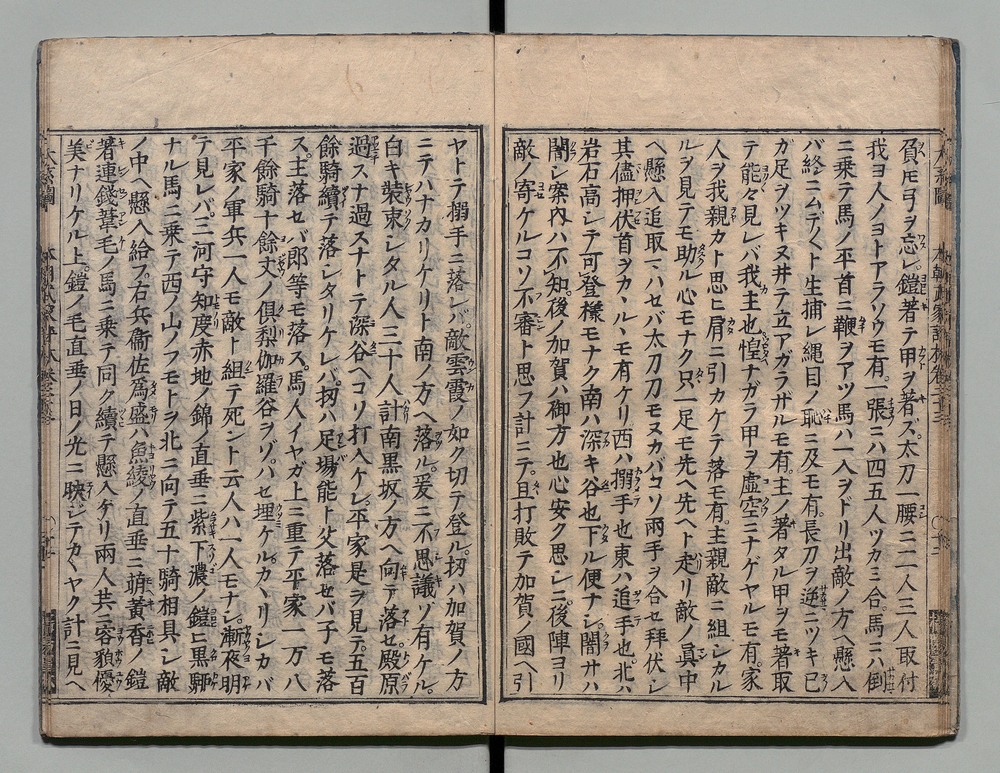 負ヒ弓ヲ忘レ。鎧著テ甲ヲ著ズ。太刀一腰ニ二人三人取付
我ヨ人ノヨトアラソウモ有。一張ニハ四五人ツカミ合。馬ニハ倒
ニ乗テ馬ノ平首ニ鞭ヲアツ馬ハ一入ヲドリ出敵ノ方ヘ懸入
バ終ニムデ〱ト生捕レ縄目ノ恥ニ及モ有。長刀ヲ逆ニツキ已
ガ足ヲツキヌ井テ立アガラザルモ有。主ノ著タル甲ヲモ著取
テ能々見レバ我主也惶ナガラ甲ヲ虚空ニナゲヤルモ有。家
人ヲ我親カト思ヒ肩ニ引カケテ落モ有。主親敵ニ組シカル
ルヲ見テモ助ル心モナク只一足モ先ヘ先ヘト走リ敵ノ真中
ヘ懸入追取マハセバ太刀刀モヌカバコソ両手ヲ合セ拝伏シ
其儘押伏首ヲカヽルヽモ有ケリ西ハ搦手也東ハ追手也。北ハ
岩石高シテ可登様モナク南ハ深キ谷也下ル便ナシ。闇サハ
闇シ案内ハ不知。後ノ加賀ハ御方也心安ク思シニ後陣ヨリ
敵ノ寄ケルコソ不審ト思フ計ニテ。且打敗テ加賀ノ國ヘ引
ヤトテ搦手ニ落レバ。敵雲霞ノ如ク切テ登ル。扨ハ加賀ノ方
ニテハナカリケリト南ノ方ヘ落ル。爰ニ不思議ゾ有ケル。
白キ装束シタル人三十人計南黒坂ノ方ヘ向テ落セ。殿原
過スナ過スナトテ深谷ヘコソ打入ケレ。平家是ヲ見テ。五百
餘騎續テ落シタリケレバ。扨ハ足場能ト父落セバ子モ落
ス。主落セバ郎等モ落ス。馬人イヤガ上ニ重テ平家一万八
千餘騎十餘丈ノ倶梨伽羅谷ヲゾハセ埋ケル。カヽリシカバ
平家ノ軍兵一人モ敵ト組テ死シト云人ハ一人モナシ。漸夜明
テ見レバ。三河守知度赤地ノ錦ノ直垂ニ紫下濃ノ鎧ニ黒
ナル馬ニ乗テ西ノ山ノフモトヲ北ニ向テ五十騎相具シ敵
ノ中ヘ懸入給フ。右兵衞佐爲盛ハ魚綾ノ直垂ニ萌黄香ノ鎧
著連錢葦毛ノ馬ニ乗テ同ク續テ懸入ケリ両人共ニ容貌優
美ナリケル上。鎧ノ毛直垂ノ日ノ光ニ映ジテカヾヤク計ニ見ヘ